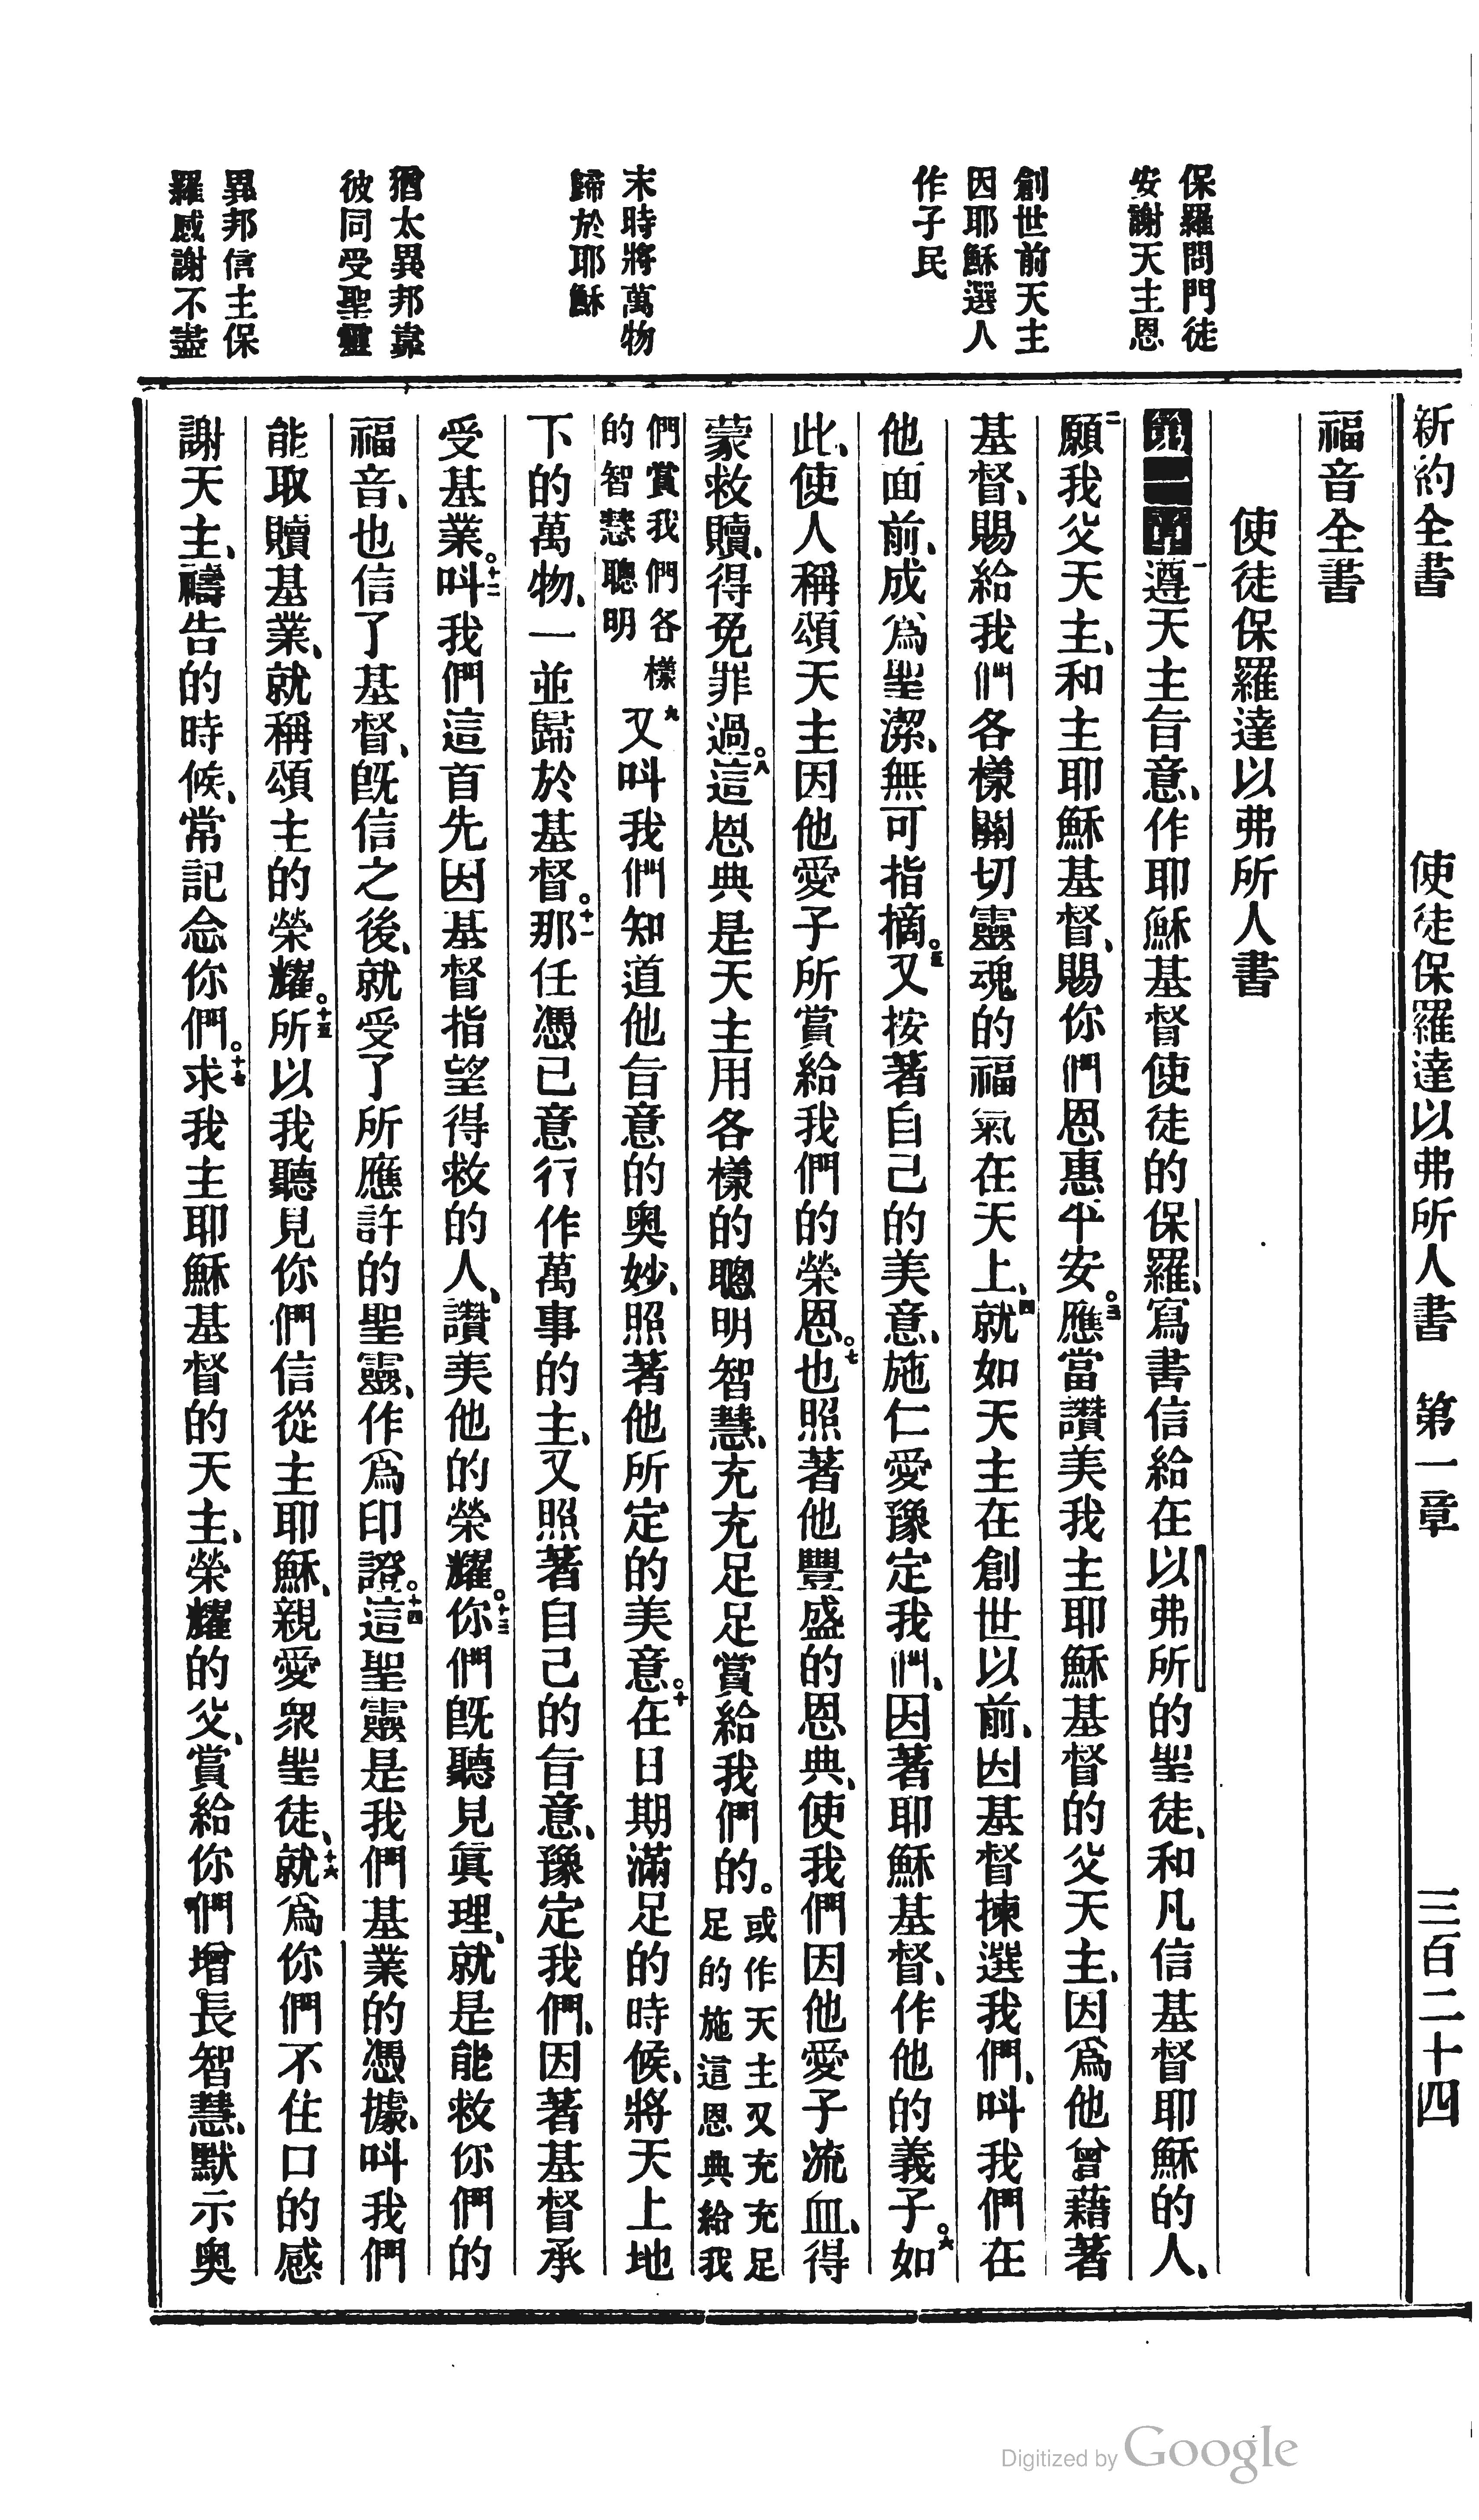 新約全書　使徒保羅達以弗所人書　第一章　三百二十四
福音全書
使徒保羅達以弗所人書
第一章一遵天主旨意、作耶穌基督使徒的保羅、寫書信給在以弗所的聖徒、和凡信基督耶穌的人、
二願我父天主、和主耶穌基督、賜你們恩惠平安。三應當讚美我主耶穌基督的父天主、因爲他曾藉著
基督、賜給我們各樣關切靈魂的福氣在天上、四就如天主在創世以前、因基督揀選我們、叫我們在
他面前、成爲聖潔、無可指摘。五又按著自己的美意、施仁愛豫定我們、因著耶穌基督、作他的義子。六如
此、使人稱頌天主因他愛子所賞給我們的榮恩。七也照著他豐盛的恩典、使我們因他愛子流血、得
蒙救贖、得免罪過。八這恩典是天主用各樣的聰明智慧、充充足足賞給我們的。或作天主又充充足足的施這恩典給我
們賞我們各樣的智慧聰明九又叫我們知道他旨意的奧妙、照著他所定的美意。十在日期滿足的時候、將天上地
下的萬物、一並歸於基督。十一那任憑已意行作萬事的主、又照著自己的旨意、豫定我們、因著基督承
受基業。十二叫我們這首先因基督指望得救的人、讚美他的榮耀。十三你們旣聽見眞理、就是能救你們的
福音、也信了基督、旣信之後、就受了所應許的聖靈、作爲印證。十四這聖靈是我們基業的憑據、叫我們
能取贖基業、就稱頌主的榮耀。十五所以我聽見你們信從主耶穌、親愛衆聖徒、十六就爲你們不住口的感
謝天主、禱告的時候、常記念你們。十七求我主耶穌基督的天主、榮耀的父、賞給你們增長智慧、默示奧
保羅問門徒
安謝天主恩
創世前天主
因耶穌選人
作子民
末時將萬物
歸於耶穌
猶太異邦靠
彼同受聖靈
異邦信主保
羅感謝不盡
Digitized by Google